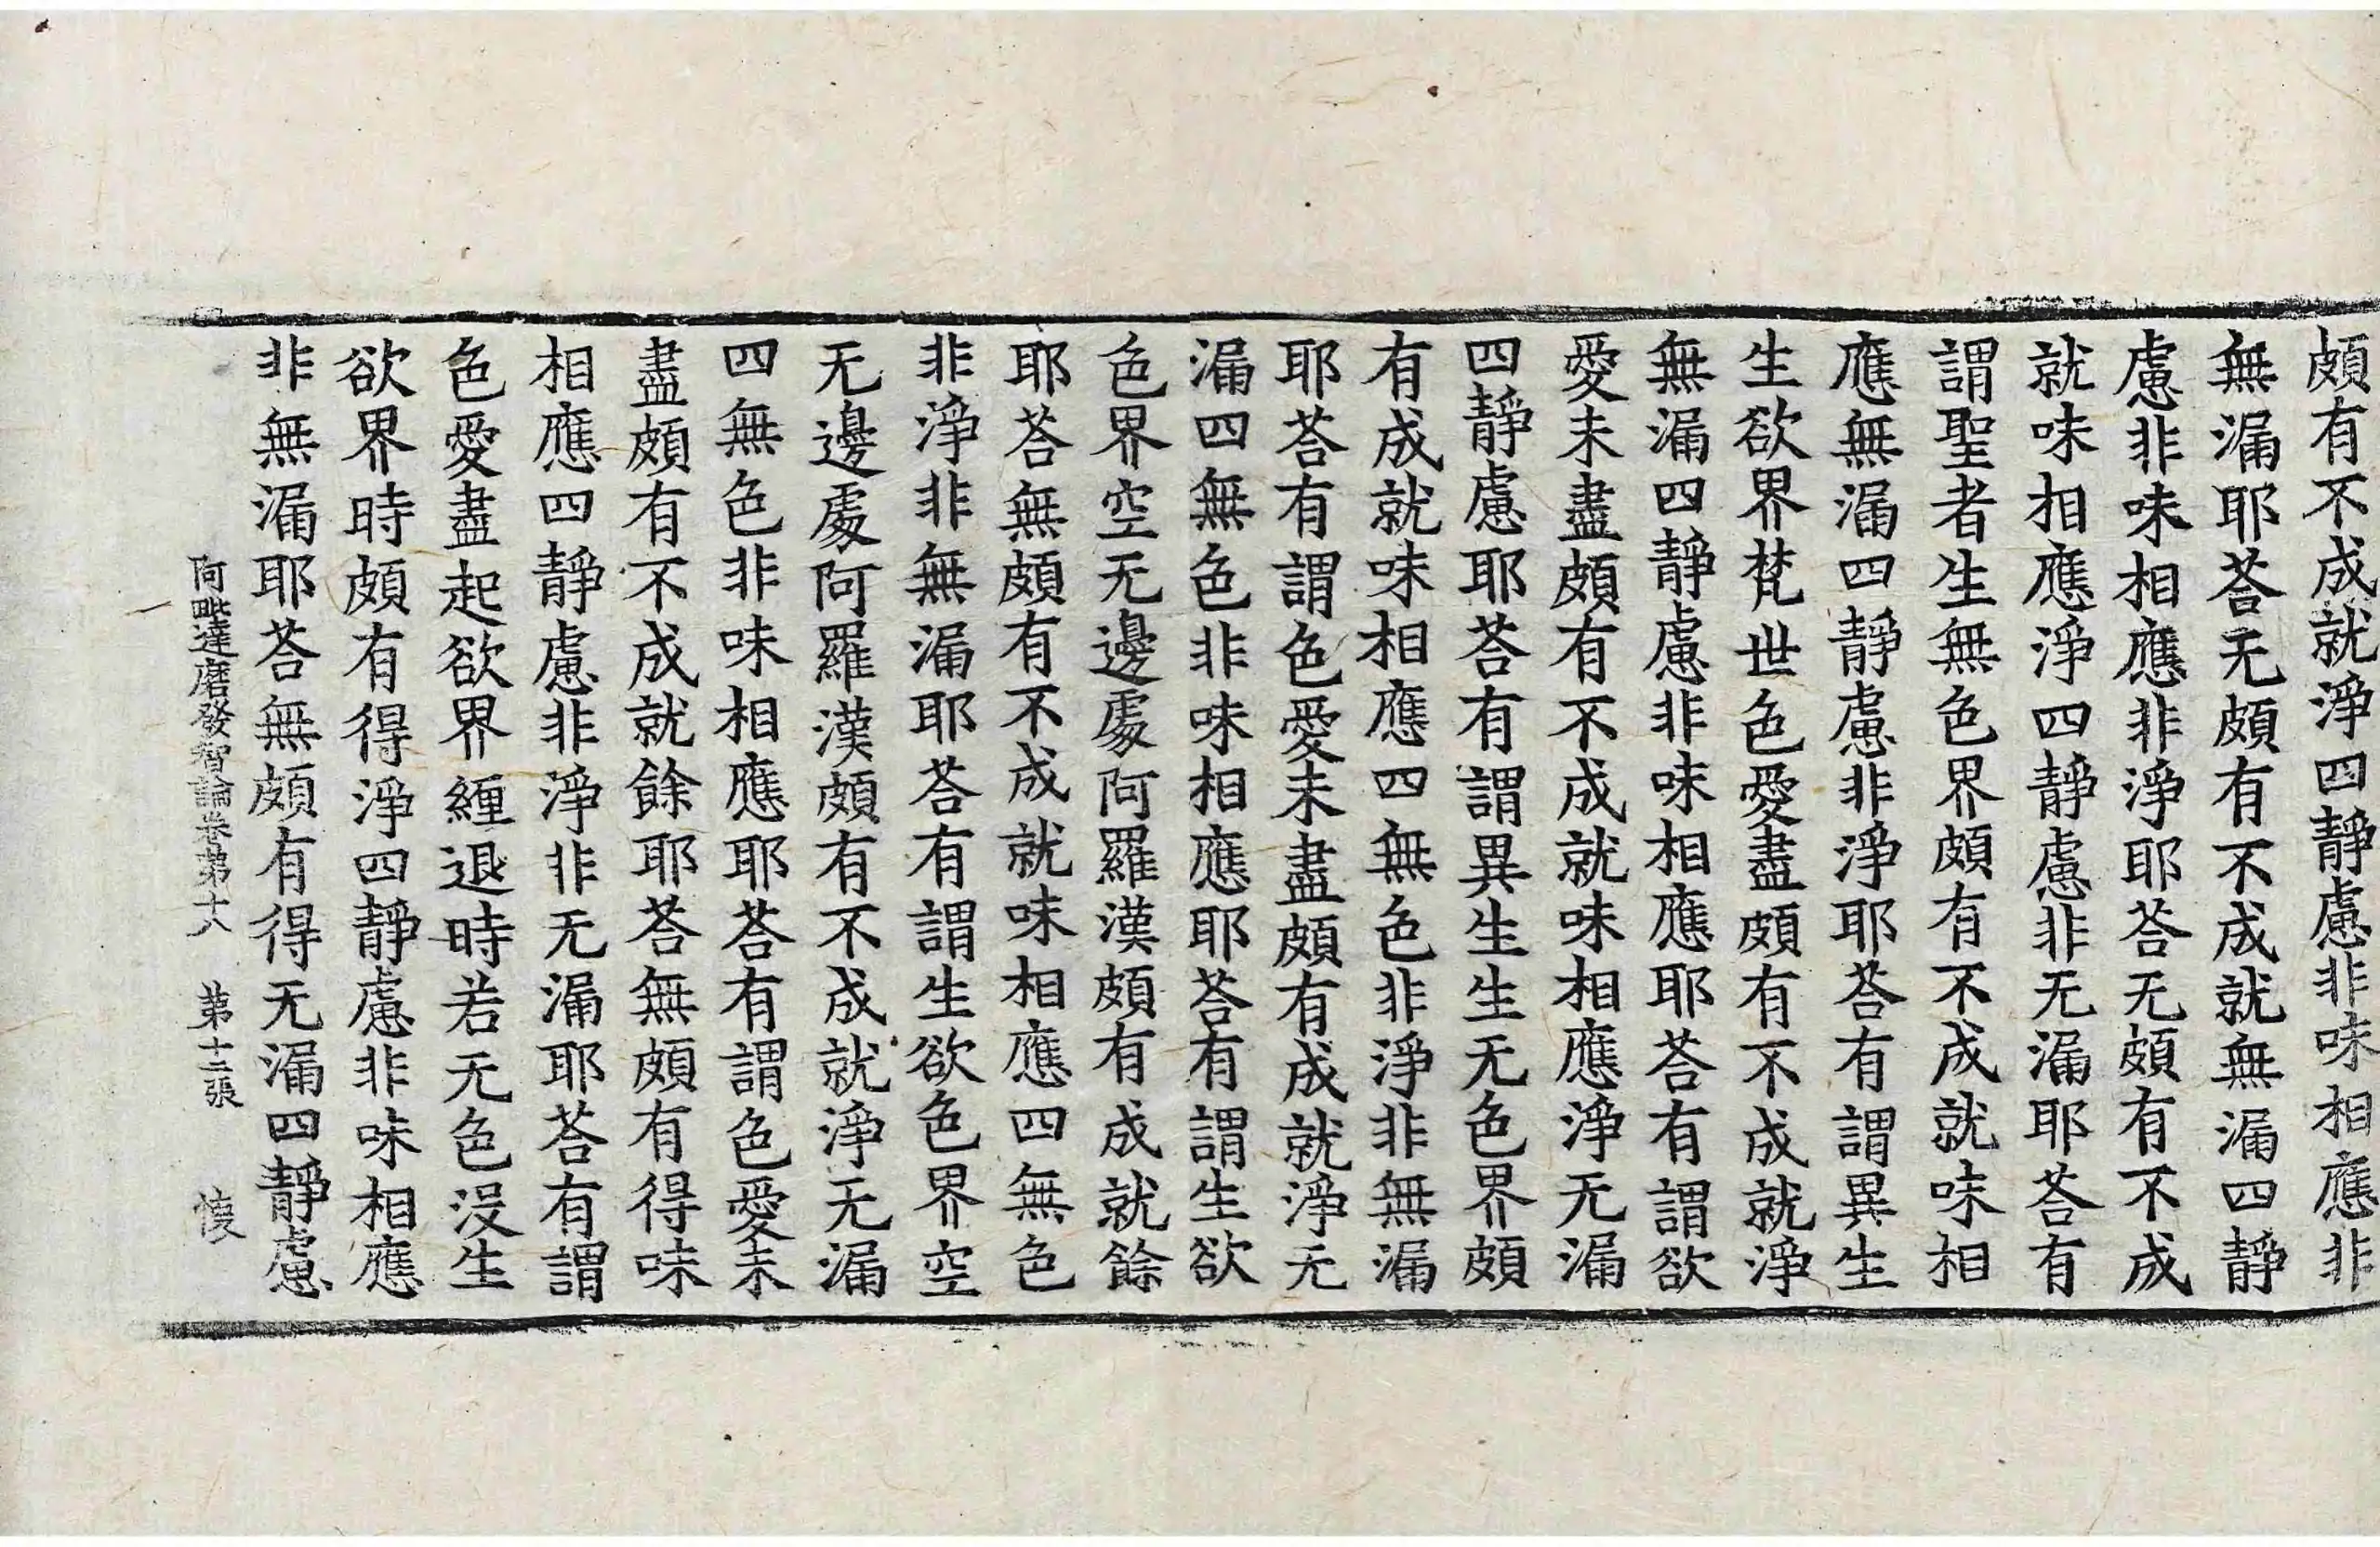 頗有不成就淨四靜慮非味相應非
無漏耶荅无頗有不成就無漏四靜
慮非味相應非淨耶荅无頗有不成
就味相應淨四靜慮非无漏耶荅有
謂聖者生無色界頗有不成就味相
應無漏四靜慮非淨耶荅有謂異生
生欲界梵世色愛盡頗有不成就淨
無漏四靜慮非味相應耶荅有謂欲
愛未盡頗有不成就味相應淨无漏
四靜慮耶荅有謂異生生无色界頗
有成就味相應四無色非淨非無漏
耶荅有謂色愛未盡頗有成就淨无
漏四無色非味相應耶荅有謂生欲
色界空无邊處阿羅漢頗有成就餘
耶荅無頗有不成就味相應四無色
非淨非無漏耶荅有謂生欲色界空
无邊處阿羅漢頗有不成就淨无漏
四無色非味相應耶荅有謂色愛未
盡頗有不成就餘耶荅無頗有得味
相應四靜慮非淨非无漏耶荅有謂
色愛盡起欲界纒退時若无色沒生
欲界時頗有得淨四靜慮非味相應
非無漏耶荅無頗有得无漏四靜慮
阿毗達磨發智論卷第十八 第十二張